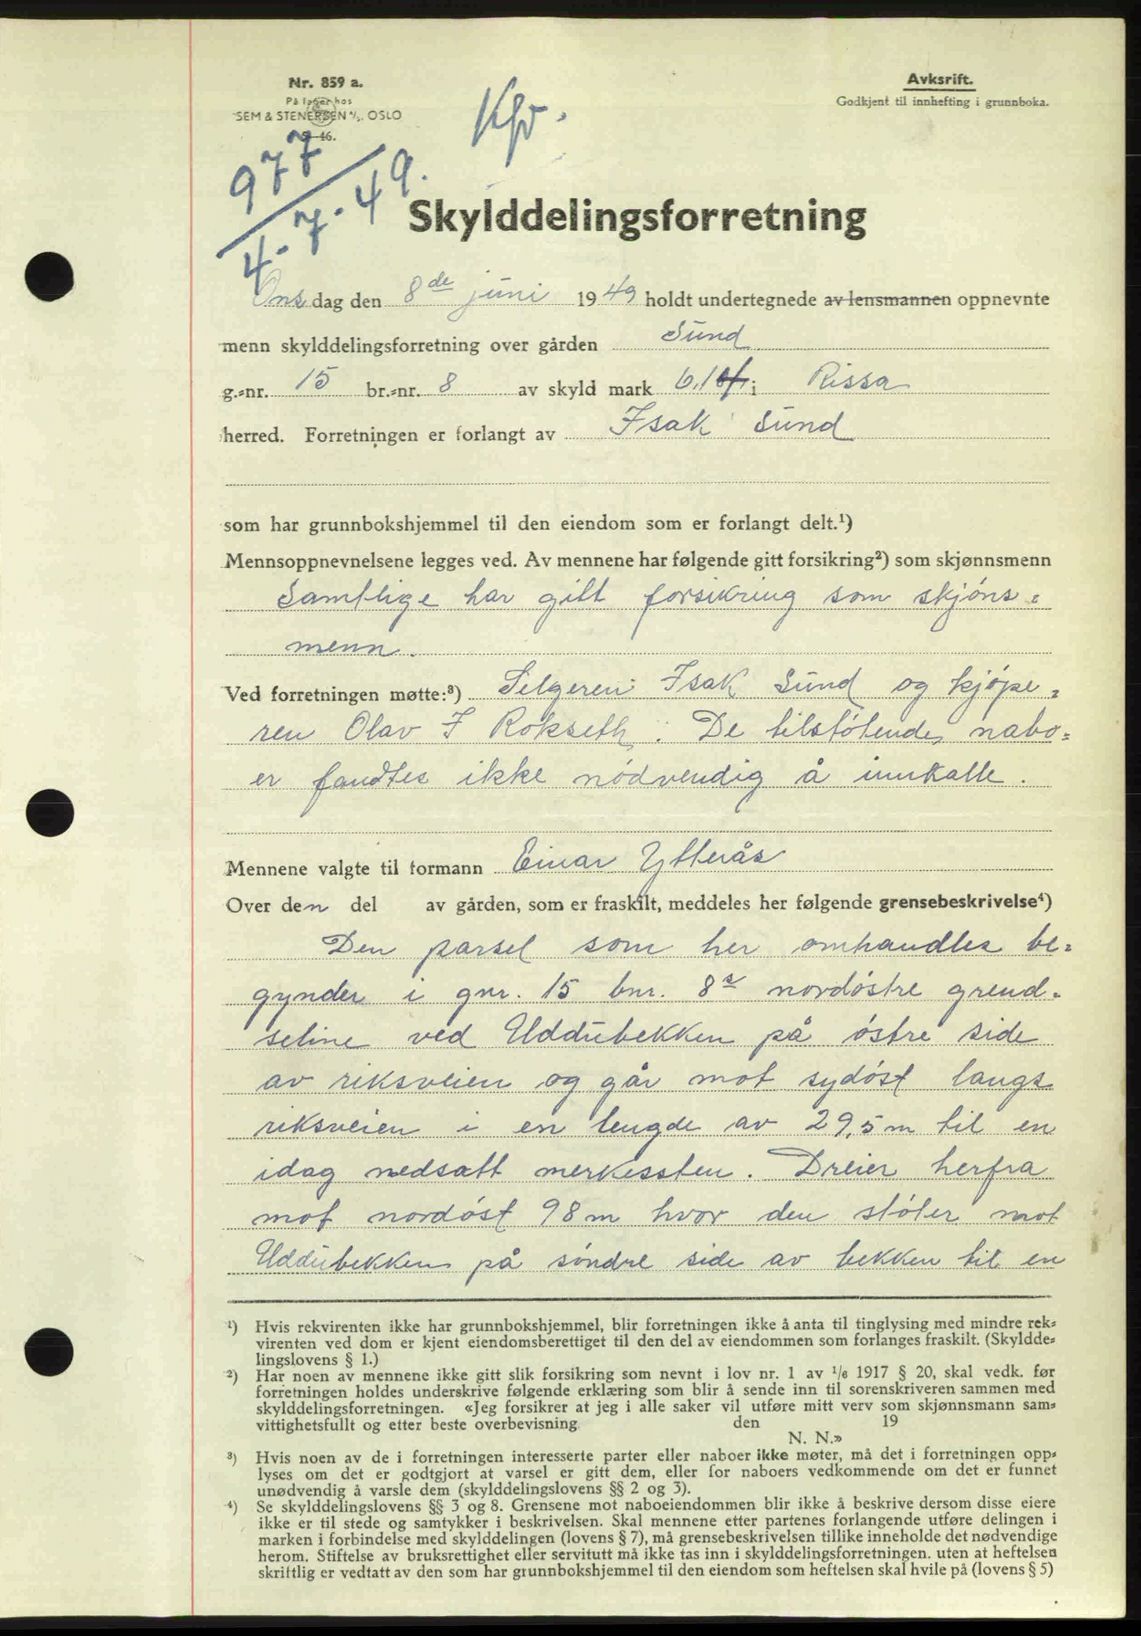 Nr. 859 a.
På lager hos
SEM & STENERSEN A/S, OSLO
46.
Avksrift.
Godkjent til innhefting i grunnboka.
Kfv.
977
4-7-49.
Skylddelingsforretning
Onsdag den 8de juni 1949 holdt undertegnede av lensmannen oppnevnte
menn skylddelingsforretning over gården Sund
g.=nr. 15 br.=nr. 8 av skyld mark 6,1 i Rissa
herred. Forretningen er forlangt av Isak Sund
som har grunnbokshjemmel til den eiendom som er forlangt delt.¹)
Mennsoppnevnelsene legges ved. Av mennene har følgende gitt forsikring²) som skjønnsmenn
Samtlige har gitt forsikring som skjøns=
menn.
Ved forretningen møtte:³) Selgeren: Isak Sund og kjøpe=
ren Olav I Rokseth. De tilstøtende nabo=
er fandtes ikke nødvendig å innkalle.
Mennene valgte til formann Einar Ytterås
Over den del av gården, som er fraskilt, meddeles her følgende grensebeskrivelse⁴)
Den parsel som her omhandles be=
gynder i gnr. 15 bnr. 8s nordøstre grend=
seline ved Uddubekken på østre side
av riksveien og går mot sydøst langs
riksveien i en lengde av 29,5 m til en
idag nedsatt merkessten. Dreier herfra
mot nordøst 98 m hvor den støter mot
Uddubekken på søndre side av bekken til en
¹) Hvis rekvirenten ikke har grunnbokshjemmel, blir forretningen ikke å anta til tinglysing med mindre rek=
virenten ved dom er kjent eiendomsberettiget til den del av eiendommen som forlanges fraskilt. (Skyldde=
lingslovens § 1.)
²) Har noen av mennene ikke gitt slik forsikring som nevnt i lov nr. 1 av 1/6 1917 § 20, skal vedk. før
forretningen holdes underskrive følgende erklæring som blir å sende inn til sorenskriveren sammen med
skylddelingsforretningen. «Jeg forsikrer at jeg i alle saker vil utføre mitt verv som skjønnsmann sam=
vittighetsfullt og etter beste overbevisning. den 19
N. N.»
³) Hvis noen av de i forretningen interesserte parter eller naboer ikke møter, må det i forretningen opp=
lyses om det er godtgjort at varsel er gitt dem, eller for naboers vedkommende om det er funnet
unødvendig å varsle dem (skylddelingslovens §§ 2 og 3).
⁴) Se skylddelingslovens §§ 3 og 8. Grensene mot naboeiendommen blir ikke å beskrive dersom disse eiere
ikke er til stede og samtykker i beskrivelsen. Skal mennene etter partenes forlangende utføre delingen i
marken i forbindelse med skylddelingen (lovens § 7), må grensebeskrivelsen tillike inneholde det nødvendige
herom. Stiftelse av bruksrettighet eller servitutt må ikke tas inn i skylddelingsforretningen, uten at heftelsen
skriftlig er vedtatt av den som har grunnbokshjemmel til den eiendom som heftelsen skal hvile på (lovens § 5)